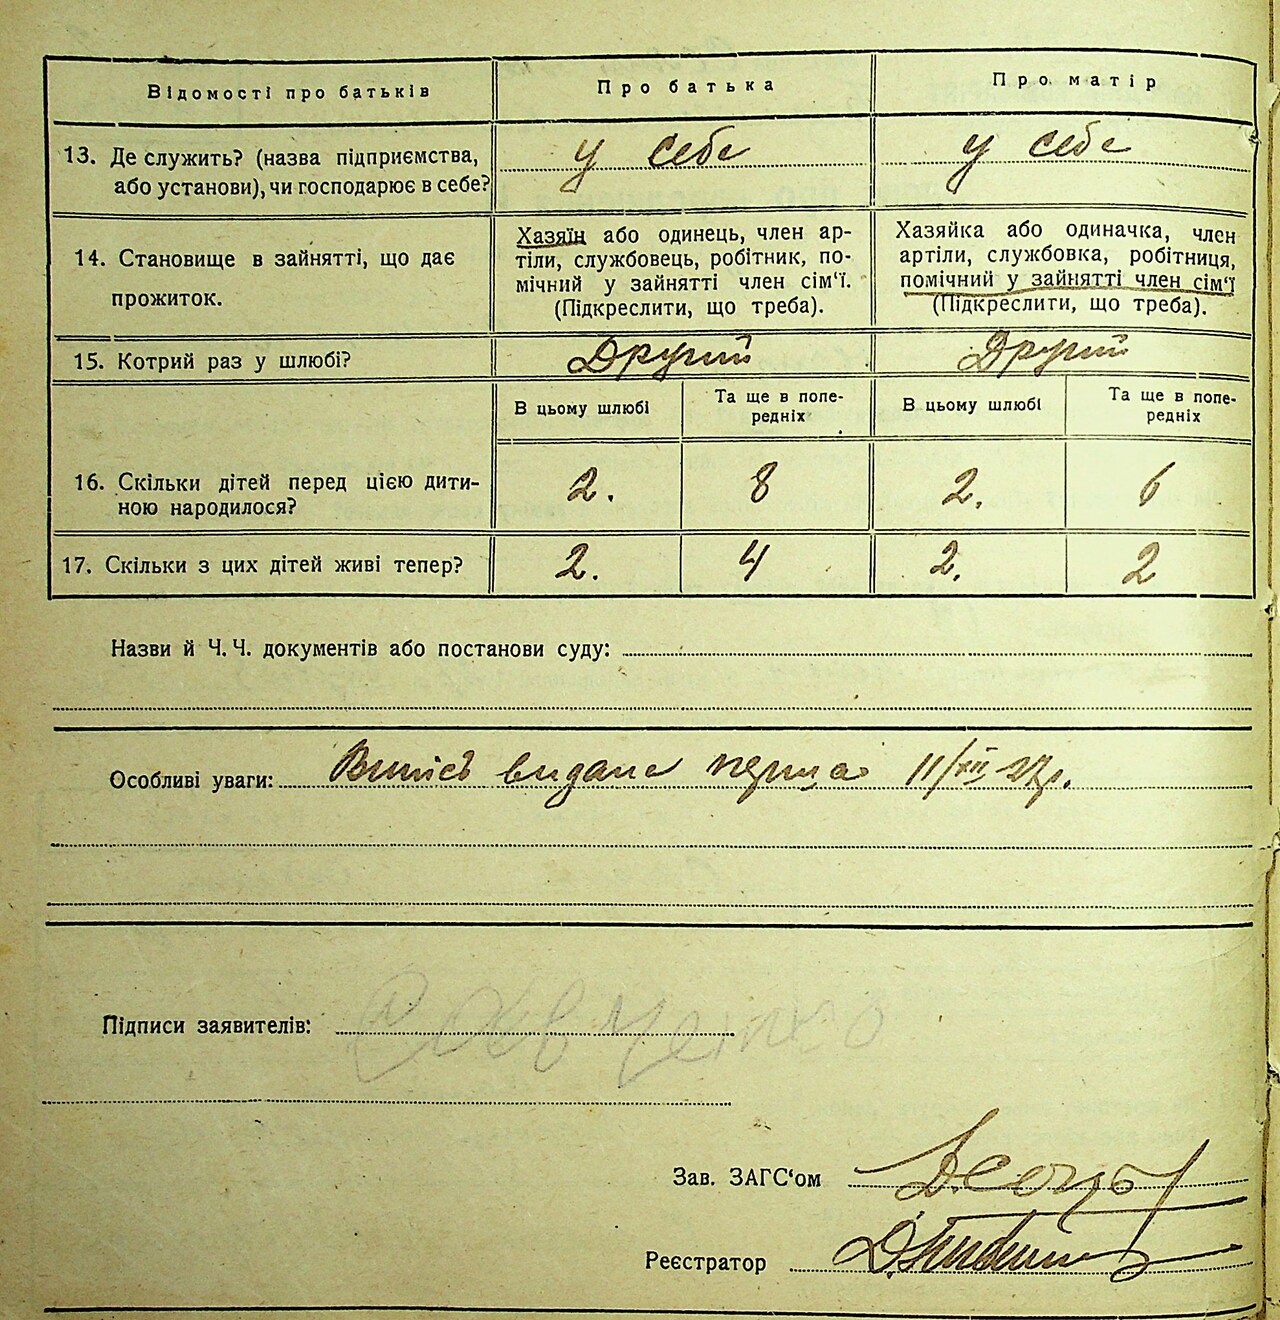 Відомості про батьків Про батька Про матір
13. Де служить? (назва підприємства, або установи), чи господарює в себе? у себе у себе
14. Становище в зайнятті, що дає прожиток.
Хазяїн або одинець, член ар-
тіли, службовець, робітник, по-
мічний у зайнятті член сім'ї.
(Підкреслити, що треба).
Хазяйка або одиначка, член
артіли, службовка, робітниця,
помічний у зайнятті член сім'ї
(Підкреслити, що треба).
15. Котрий раз у шлюбі? Другий Другий
В цьому шлюбі Та ще в попе-
редніх В цьому шлюбі Та ще в попе-
редніх
16. Скільки дітей перед цією дити-
ною народилося? 2. 8 2. 6
17. Скільки з цих дітей живі тепер? 2. 4 2. 2
Назви й Ч. Ч. документів або постанови суду:
Особливі уваги: Випись видана перша 11/XII 27р.
Підписи заявителів:
Зав. ЗАГС'ом
Реєстратор